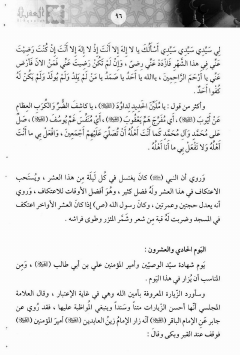 ٩٦
لِي سَيِّدِي سَيِّدِي أَسْأَلُكَ يَا لَا إِلٰهَ إِلَّا أَنْتَ إِذْ لَا إِلٰهَ إِلَّا أَنْتَ إِنْ كُنْتَ رَضِيتَ
عَنِّي فِي هٰذَا الشَّهْرِ فَازْدَدْ عَنِّي رِضىً، وَإِنْ لَمْ تَكُنْ رَضِيتَ عَنِّي فَمِنَ الْآنَ فَارْضَ
عَنِّي يَا أَرْحَمَ الرَّاحِمِينَ، يَا اللهُ يَا أَحَدُ يَا صَمَدُ يَا مَنْ لَمْ يَلِدْ وَلَمْ يُولَدْ وَلَمْ يَكُنْ لَهُ
كُفُواً أَحَدٌ.
وأكثر من قول: يَا مُلَيِّنَ الْحَدِيدِ لِدَاوُدَ، يَا كَاشِفَ الضُّرِّ وَالْكُرَبِ الْعِظَامِ
عَنْ أَيُّوبَ، أَيْ مُفَرِّجَ هَمِّ يَعْقُوبَ، أَيْ مُنَفِّسَ غَمِّ يُوسُفَ، صَلِّ
عَلَى مُحَمَّدٍ وَآلِ مُحَمَّدٍ كَمَا أَنْتَ أَهْلُهُ أَنْ تُصَلِّيَ عَلَيْهِمْ أَجْمَعِينَ، وَافْعَلْ بِي مَا أَنْتَ
أَهْلُهُ وَلَا تَفْعَلْ بِي مَا أَنَا أَهْلُهُ.
وروي أن النبي كان يغتسل في كل ليلة من هذا العشر، ويستحب
الاعتكاف في هذا العشر وله فضل كثير، وهو أفضل الأوقات للاعتكاف، وروي
أنه يعدل حجتين وعمرتين، وكان رسول الله (ص) إذا كان العشر الأواخر اعتكف
في المسجد وضربت له قبة من شعر وشمّر المئزر وطوى فراشه.
اليوم الحادي والعشرون:
يوم شهادة سيد الوصيين وأمير المؤمنين علي بن أبي طالب، ومن
المناسب أن يُزار في هذا اليوم.
وسأورد الزيارة المعروفة بأمين الله وهي في غاية الإعتبار، وقال العلامة
المجلسي أنها أحسن الزيارات متناً وسنداً وينبغي المواظبة عليها، فقد روي عن
جابر عن الإمام الباقر أنه زار الإمام زين العابدين أمير المؤمنين
فوقف عند القبر وبكى وقال: